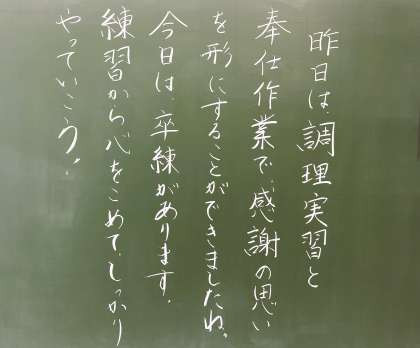 昨日は、調理実習と
奉仕作業で、感謝の思い
を形にすることができましたね。
今日は、卒練があります。
練習から心をこめて、しっかり
やっていこう！